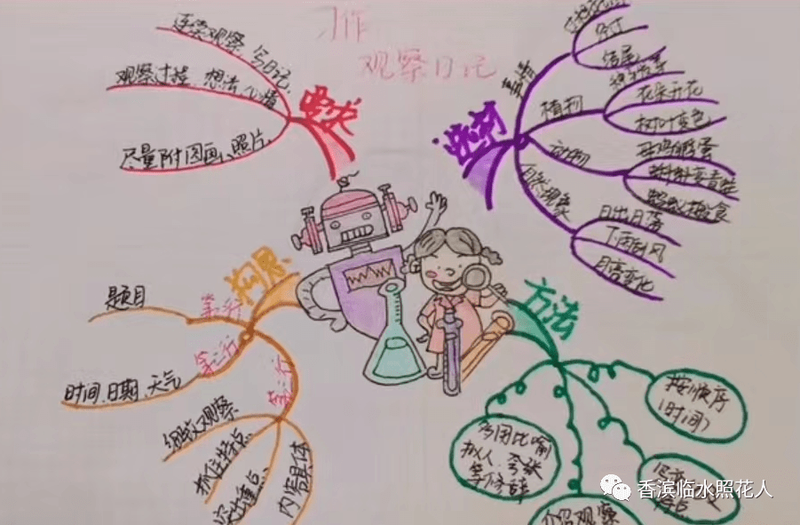 习作
观察日记
要求
连续观察 写日记
观察过程 想法 心情
尽量附图画、照片
选材
事情
结尾
植物
花朵开花
树叶变色
动物
母鸡孵蛋
自然现象
日出日落
下雨刮风
月亮变化
构思
第一行
题目
第二行
时间、日期、天气
第三行
细致观察
抓住特点
突出重点
内容具体
方法
按顺序
(时间)
多用比喻
拟人、夸张
等修辞
介绍观察
香滨临水照花人